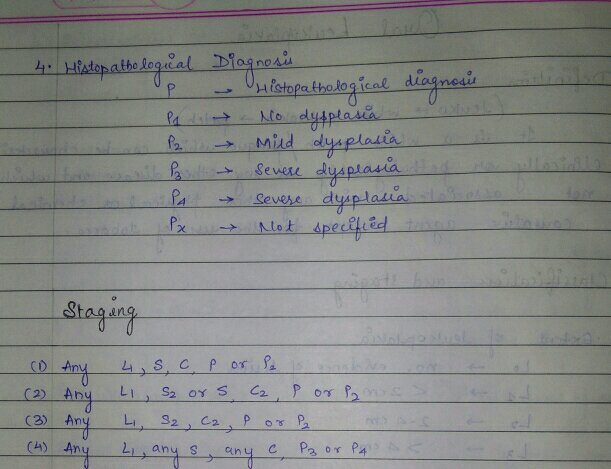 4. Histopathological Diagnosis
P → Histopathological diagnosis
P1 → No dysplasia
P2 → Mild dysplasia
P3 → Severe dysplasia
P4 → Severe dysplasia
Px → Not specified
Staging
(1) Any L, S, C, P or P2
(2) Any L1, S2 or S, C2, P or P2
(3) Any L1, S2, C2, P or P2
(4) Any L1, any S, any C, P3 or P4